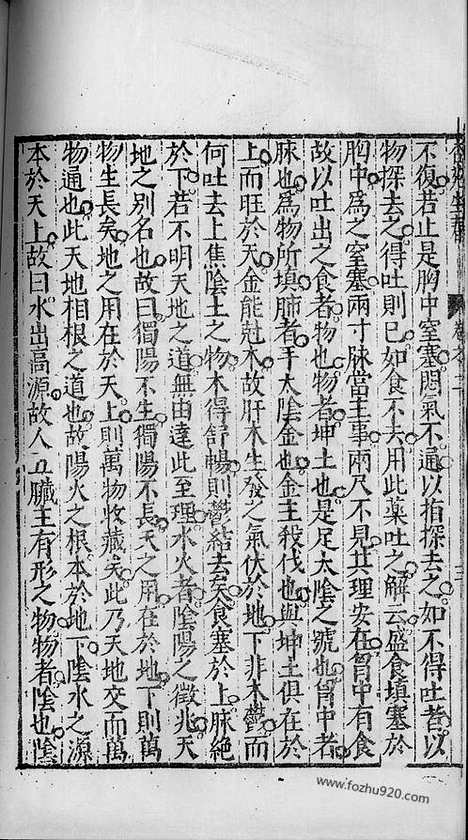 不復若止是胸中窒塞悶氣不通以指探去之如不得吐者以
物探去之得吐則已如食不去用此藥吐之解云盛食填塞於
胸中為之窒塞兩寸脉當主事兩尺不見其理安在胷中有食
故以吐出之食者物也物者坤土也是足太陰之號也胷中者
肺也為物所填肺者手太陰金也金主殺伐也與坤土俱在於
上而旺於天金能尅木故肝木生發之氣伏於地下非木鬱而
何吐去上焦陰土之物木得舒暢則鬱結去矣食塞於上脉絕
於下若不明天地之道無由達此至理水火者陰陽之徵兆天
地之別名也故曰獨陽不生獨陽不長天之用在於地下則萬
物生長矣地之用在於天上則萬物收藏矣此乃天地交而萬
物通也此天地相根之道也故陽火之根本於地下陰水之源
本於天上故曰水出高源故人五臟主有形之物物者陰也陰
www.fozhu920.com